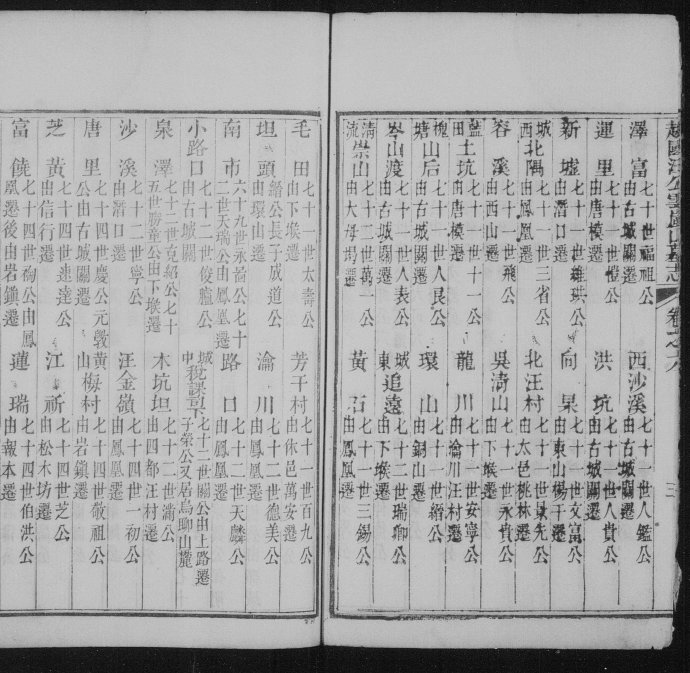 越國汪公墓志 卷之六
澤富 七十世福祖公由古城關遷
西沙溪 七十一世人鑑公由古城關遷
運里 七十一世公由唐模遷
洪坑 七十一世人貴公由古城關遷
新墟 七十一世公由潛口遷
向杲 七十一世文富公由東山楊干遷
城北隅 七十一世三省公由鳳凰遷
北汪村 七十一世先公由太邑桃林遷
西容溪 七十一世飛公由西山遷
吳清山 七十一世永貴公由下堠遷
藍田土坑 七十一世十一公由唐模遷
龍川 七十一世安寧公由瀹川汪村遷
槐塘山后 七十一世人艮公由古城關遷
環山 七十一世縉公由銅山遷
岑山渡 七十二世人表公由古城關遷
城東追遠 七十二世瑞卿公由下堠遷
清流崇山 七十二世萬一公由大母堨遷
黃石 七十一世三錫公由鳳凰遷
毛田 七十一世太壽公由下堠遷
芳干村 七十一世百九公由休邑萬安遷
坦頭 縉公長子成道公由環山遷
瀹川 七十二世德美公由鳳凰遷
南市 六十九世永高公七十二世天瑞公由鳳凰遷
路口 七十二世天麟公由鳳凰遷
小路口 七十二世俊臚公由古城關
城中稅課司下 七十二世關公由上路遷子榮公又居烏聊山麓
泉澤 七十二世克紹公七十五世勝童公由下堠遷
木坑坦 七十二世滿公由四都汪村遷
沙溪 七十二世寧公由潛口遷
汪金嶺 七十四世一初公由鳳凰遷
唐里 七十四世慶公元敦公由古城關遷
黃梅村 七十四世敬祖公由岩鎮遷
芝黃 七十四世速達公由信行遷
江祈 七十四世芝公由松木坊遷
富饒 七十四世祹公由鳳凰遷後由岩鎮遷
蓮瑞 七十四世伯洪公由報本遷